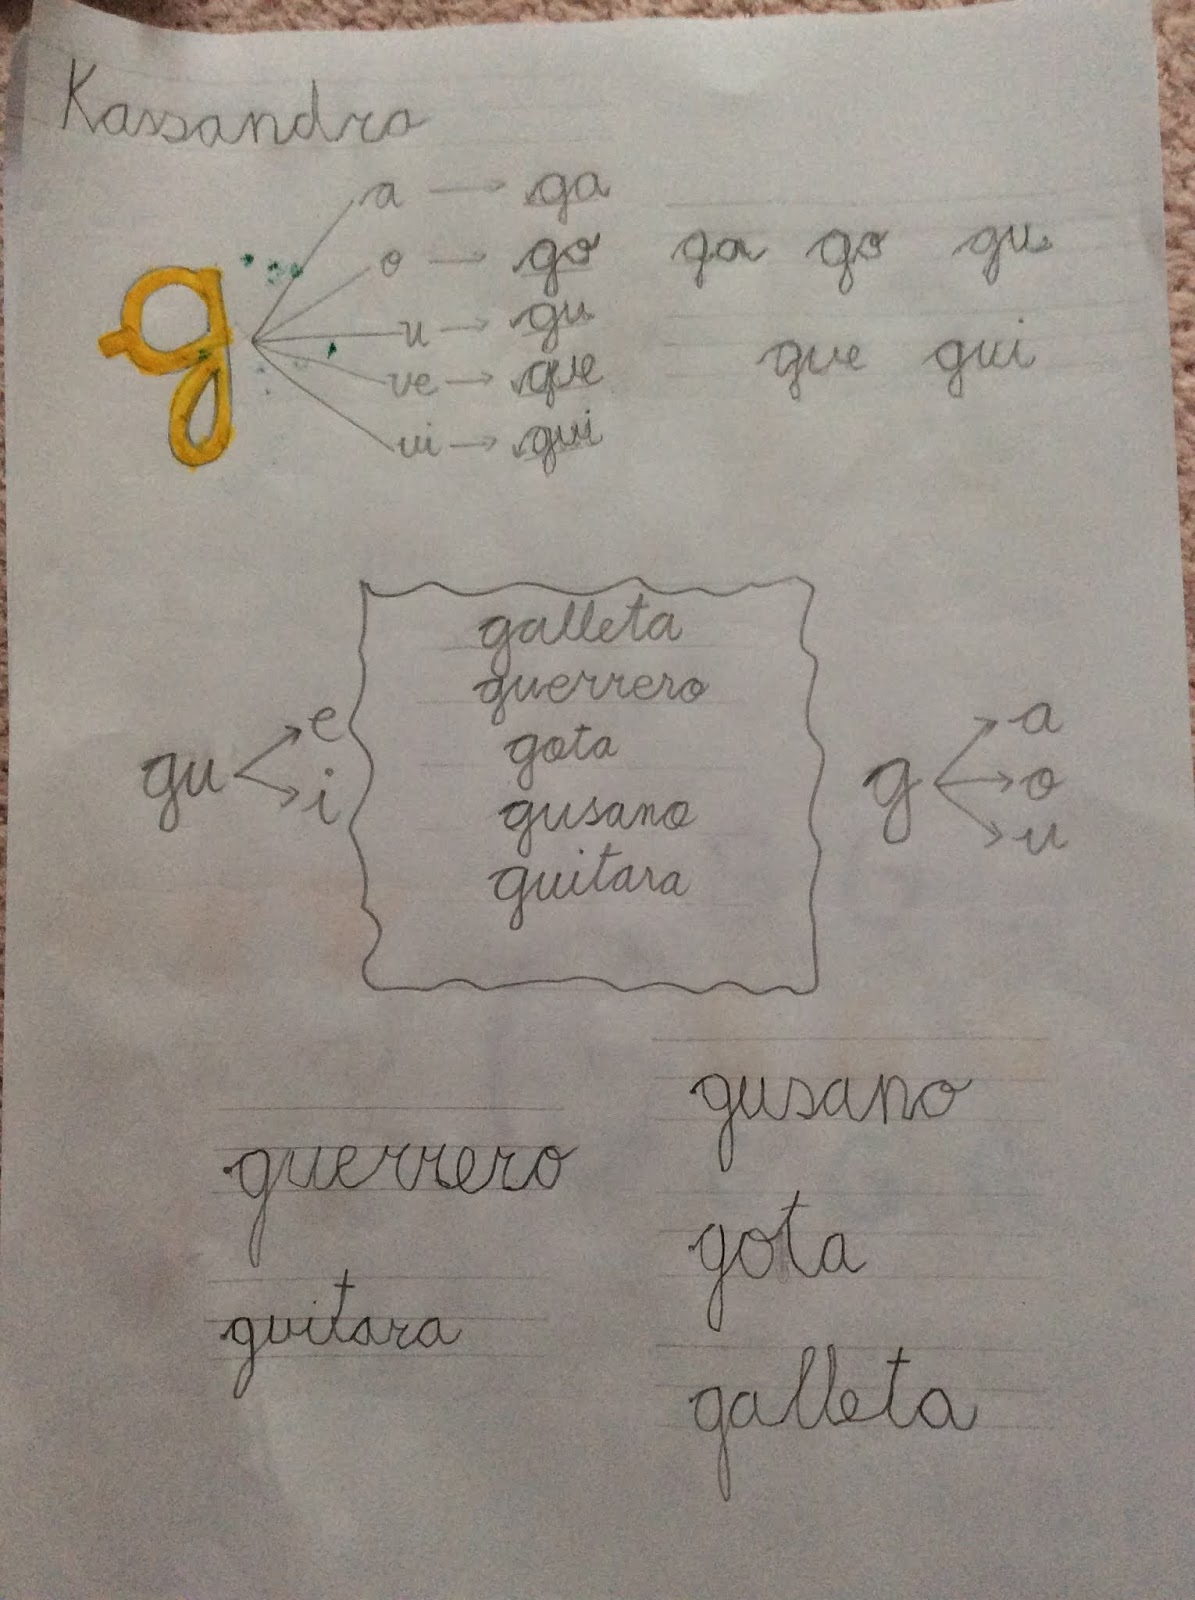 Kassandra
g
a → ga
o → go
u → gu
ue → gue
ui → gui
ga go gu
gue gui
galleta
guerrero
gota
gusano
guitara
gu
e
i
g
a
o
u
guerrero
guitara
gusano
gota
galleta